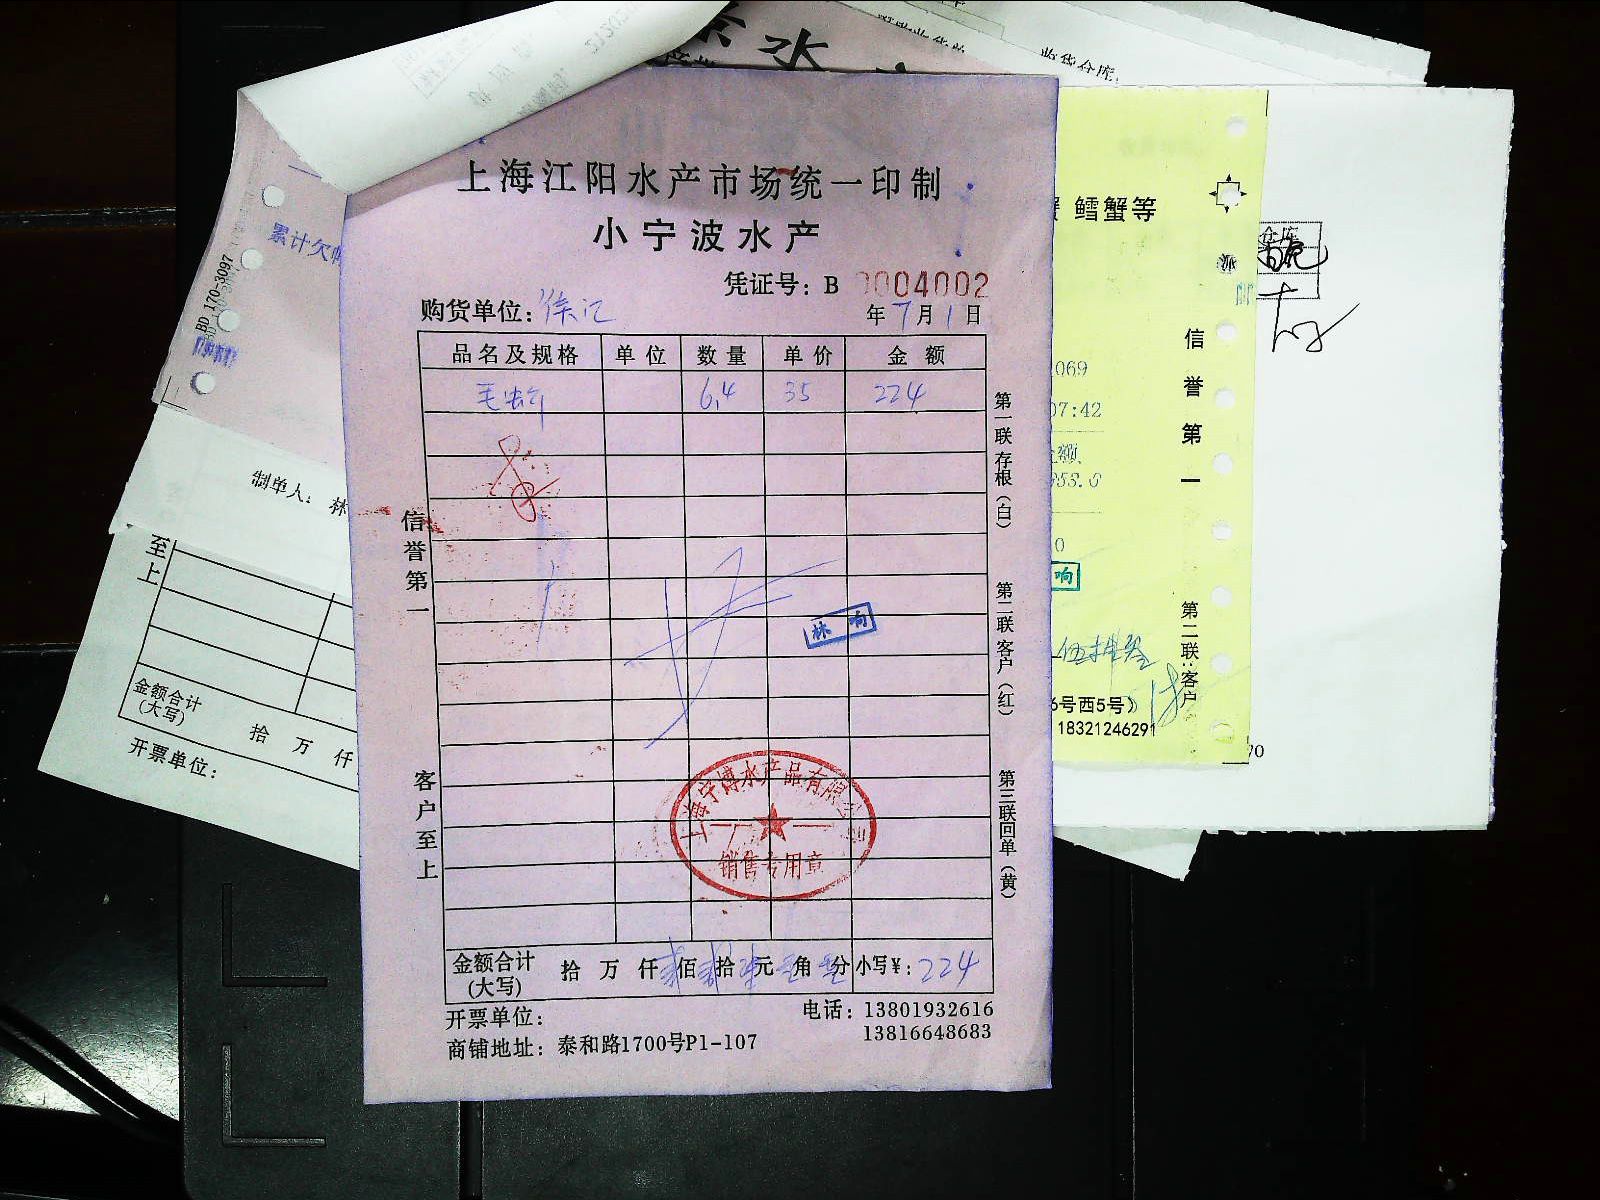 上海江阳水产市场统一印制
小宁波水产
凭证号：B 0004002
购货单位：徐记 年7月1日
品名及规格 单位 数量 单价 金额
毛蚶 6.4 35 224
信誉第一
客户至上
第一联存根（白）
第二联客户（红）
第三联回单（黄）
林响
上海宁博水产品有限公司
销售专用章
金额合计(大写) 拾 万 仟 贰佰 贰拾 肆元 角 分 小写¥：224
开票单位：
电话：13801932616
13816648683
商铺地址：泰和路1700号P1-107
水
收货仓库：
累计欠
BD 170-3097
制单人：林
至上
金额合计
(大写)
拾 万 仟
开票单位：
鳕蟹等
仓库
信誉第一
069
07:42
金额
953.0
0
响
第二联：客户
6号西5号）
18321246291
70